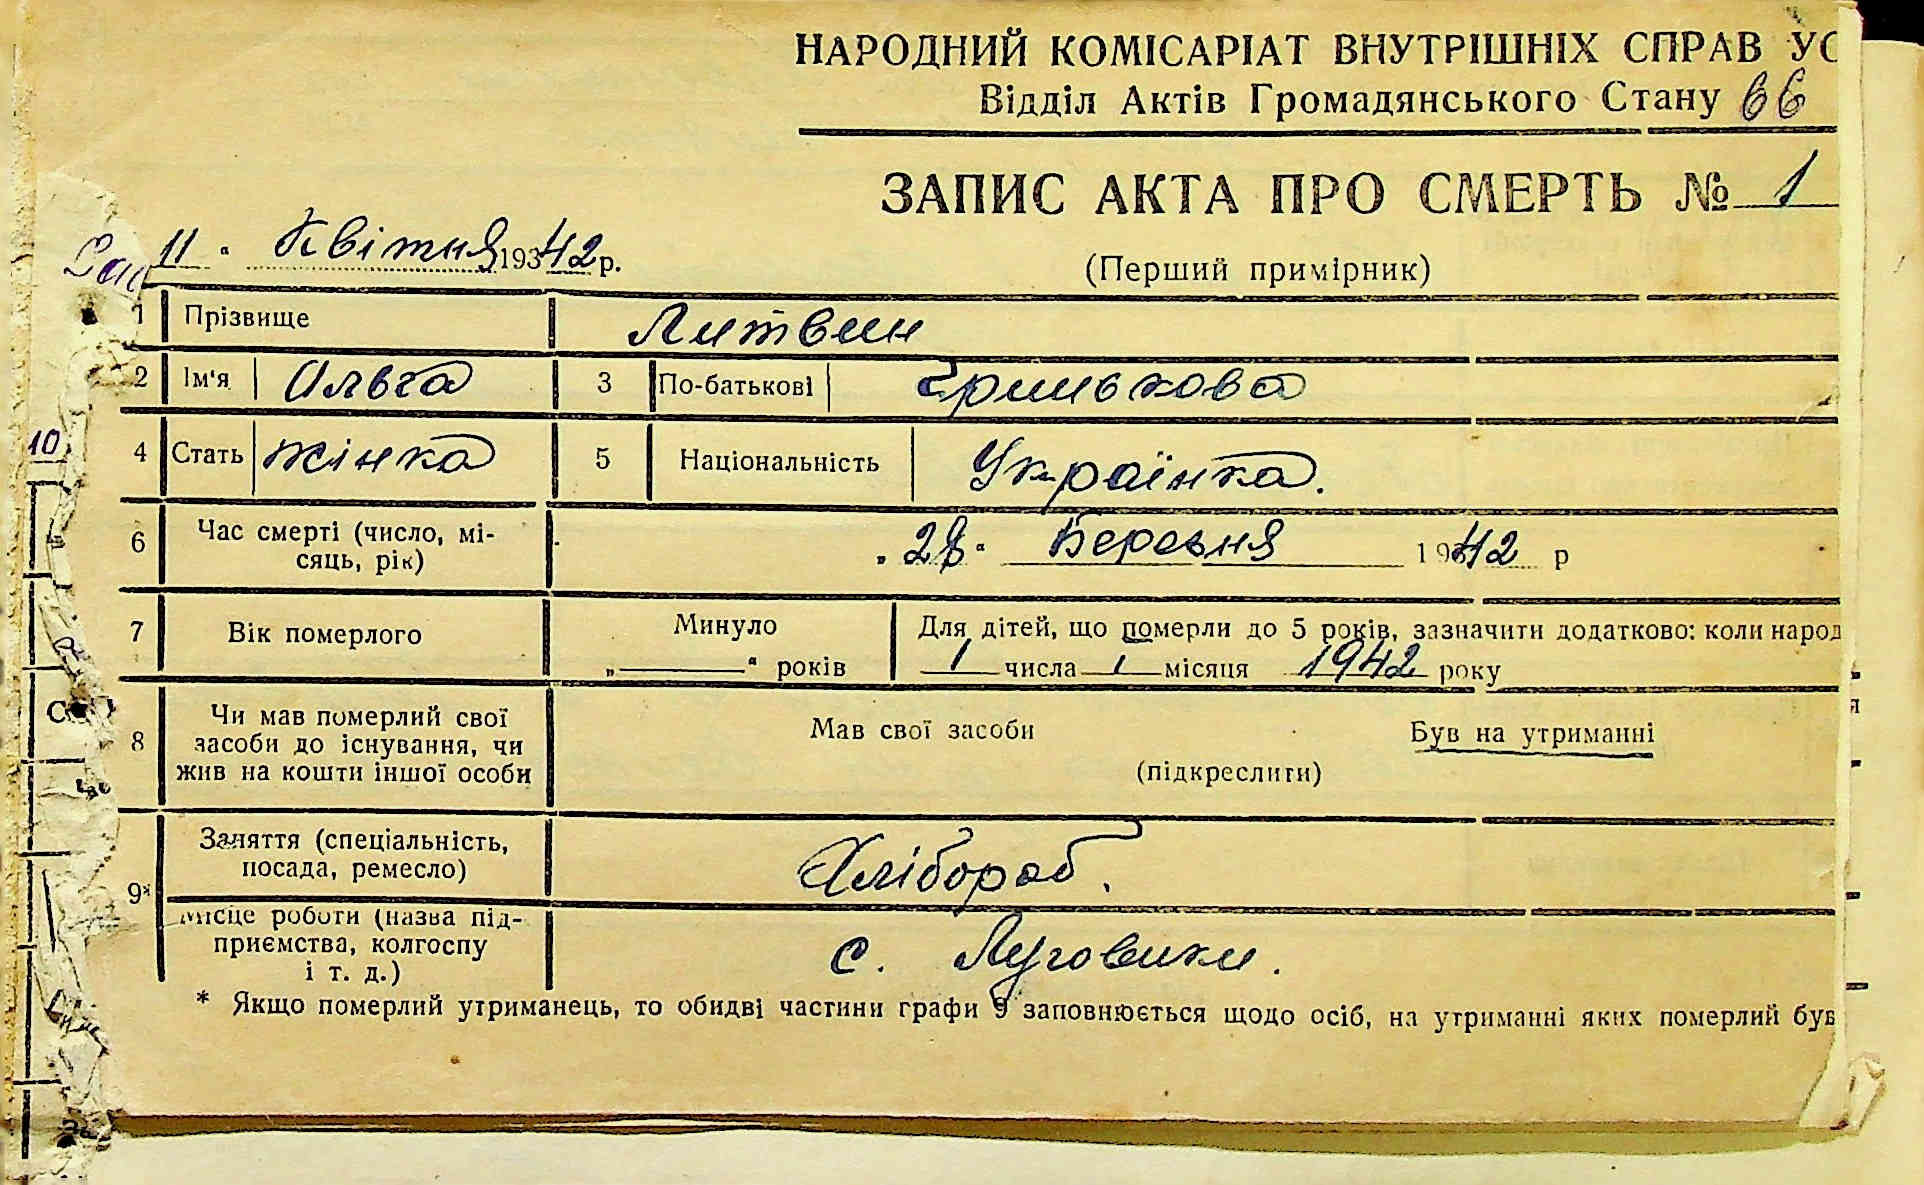 НАРОДНИЙ КОМІСАРІАТ ВНУТРІШНІХ СПРАВ УС
Відділ Актів Громадянського Стану 66
ЗАПИС АКТА ПРО СМЕРТЬ № 1
11 " Квітня 1942 р.
(Перший примірник)
1 Прізвище Литвин
2 Ім'я Ольга 3 По-батькові Грицькова
4 Стать жінка 5 Національність Українка.
10
6 Час смерті (число, мі-
сяць, рік) „28" Березня 1942 р
7 Вік померлого Минуло Для дітей, що померли до 5 років, зазначити додатково: коли народ
„ " років 1 числа 1 місяця 1942 року
8 Чи мав померлий свої
засоби до існування, чи
жив на кошти іншої особи
Мав свої засоби Був на утриманні
(підкреслити)
9* Заняття (спеціальність,
посада, ремесло) Хлібороб.
Місце роботи (назва під-
приємства, колгоспу
і т. д.) с. Луговики.
* Якщо померлий утриманець, то обидві частини графи 9 заповнюється щодо осіб, на утриманні яких померлий був